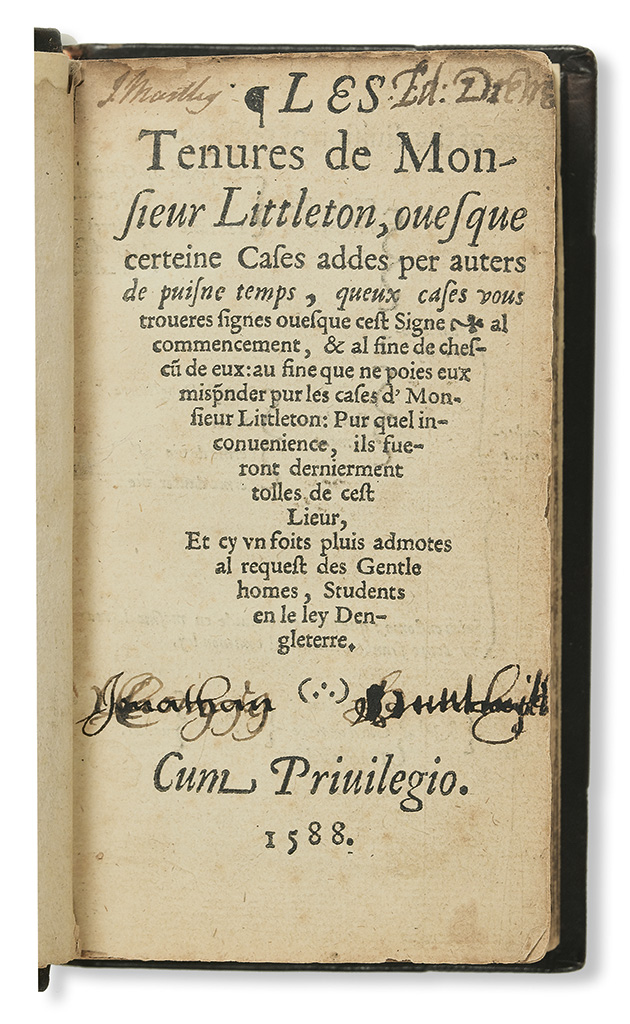 ¶ LES Ed: Drewe
Tenures de Mon-
ſieur Littleton, oueſque
certeine Caſes addes per auters
de puiſne temps, queux caſes vous
troueres ſignes oueſque ceſt Signe ❧ al
commencement, & al fine de cheſ-
cū de eux: au fine que ne poies eux
misp̃nder pur les caſes d' Mon-
ſieur Littleton: Pur quel in-
conuenience, ils fue-
ront dernierment
tolles de ceſt
Lieur,
Et cy vn foits pluis admotes
al requeſt des Gentle
homes, Students
en le ley Den-
gleterre.
Jonathan (∴)
Cum Priuilegio.
1588.